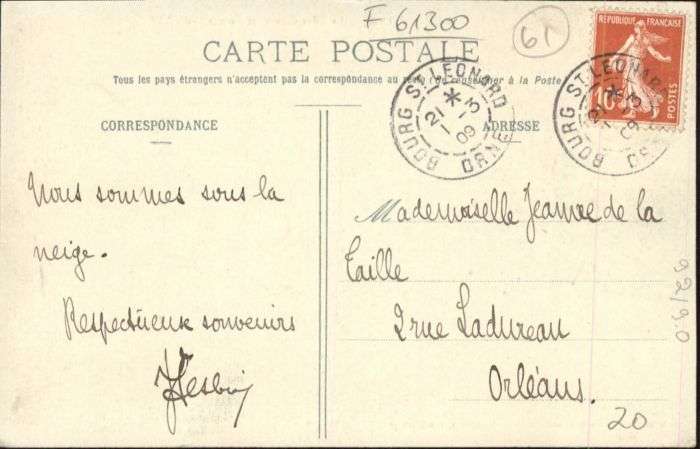 F 61300
61
CARTE POSTALE
RÉPUBLIQUE FRANÇAISE
10
POSTES
Tous les pays étrangers n'acceptent pas la correspondance au (Se renseigner à la Poste)
BOURG ST LEONARD
21 * 1-3
09
ORNE
BOURG ST LEONARD
21 * 1-3
09
CORRESPONDANCE
ADRESSE
Nous sommes sous la
neige.
Respectueux souvenirs
Mademoiselle Jeanne de la
Taille
2 rue Ladureau
Orléans.
92/90
20